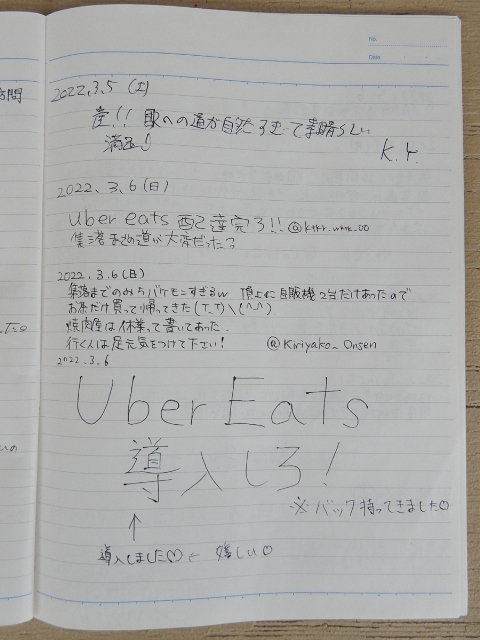 No.
Date
訪問
2022.3.5 (土)
駅への道が自然すぎて素晴らしい
満足!
K.Y.
2022.3.6(日)
Uber eats 配達完了!!
集落までの道が大変だった?
2022.3.6(日)
集落までのみちバケモンすぎるw 頂上に自販機2台だけあったので
お茶だけ買って帰ってきた(T_T)\(^^)
焼肉屋は休業って書いてあった.
行く人は足元気をつけて下さい! @Kiriyako_Onsen
2022.3.6
Uber Eats
導入しろ!
※バック持ってきました♡
↑
導入しました♡ ← 嬉しい♡